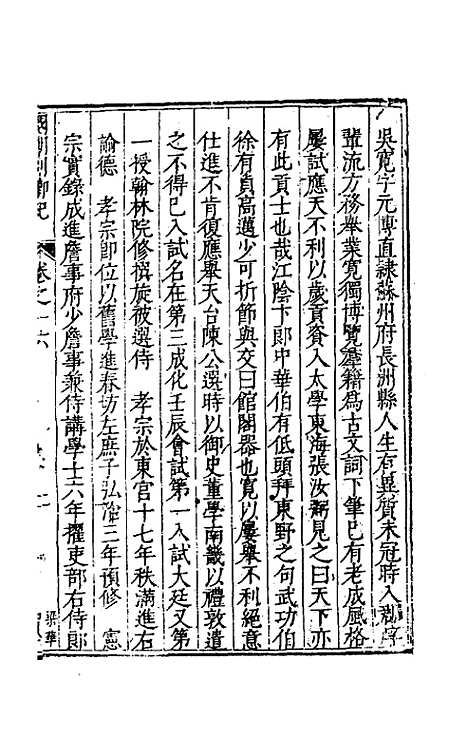 吳寬字元博直隸蘇州府長洲縣人生有異質未冠時入郡庠
輩流方務舉業寬獨博覽羣籍爲古文詞下筆已有老成風格
屢試應天不利以歲貢資入太學東海張汝弼見之曰天下亦
有此貢士也哉江陰卞郎中華伯有低頭拜東野之句武功伯
徐有貞高邁少可折節與交曰館閣器也寬以屢舉不利絕意
仕進不肯復應舉天台陳公選時以御史董學南畿以禮敦遣
之不得已入試名在第三成化壬辰會試第一入試大廷又第
一授翰林院修撰旋被選侍 孝宗於東宮十七年秩滿進右
諭德 孝宗即位以舊學進春坊左庶子弘治三年預修 憲
宗實錄成進詹事府少詹事兼侍講學士六年擢吏部右侍郎
國朝列卿紀
卷之十六
梁華